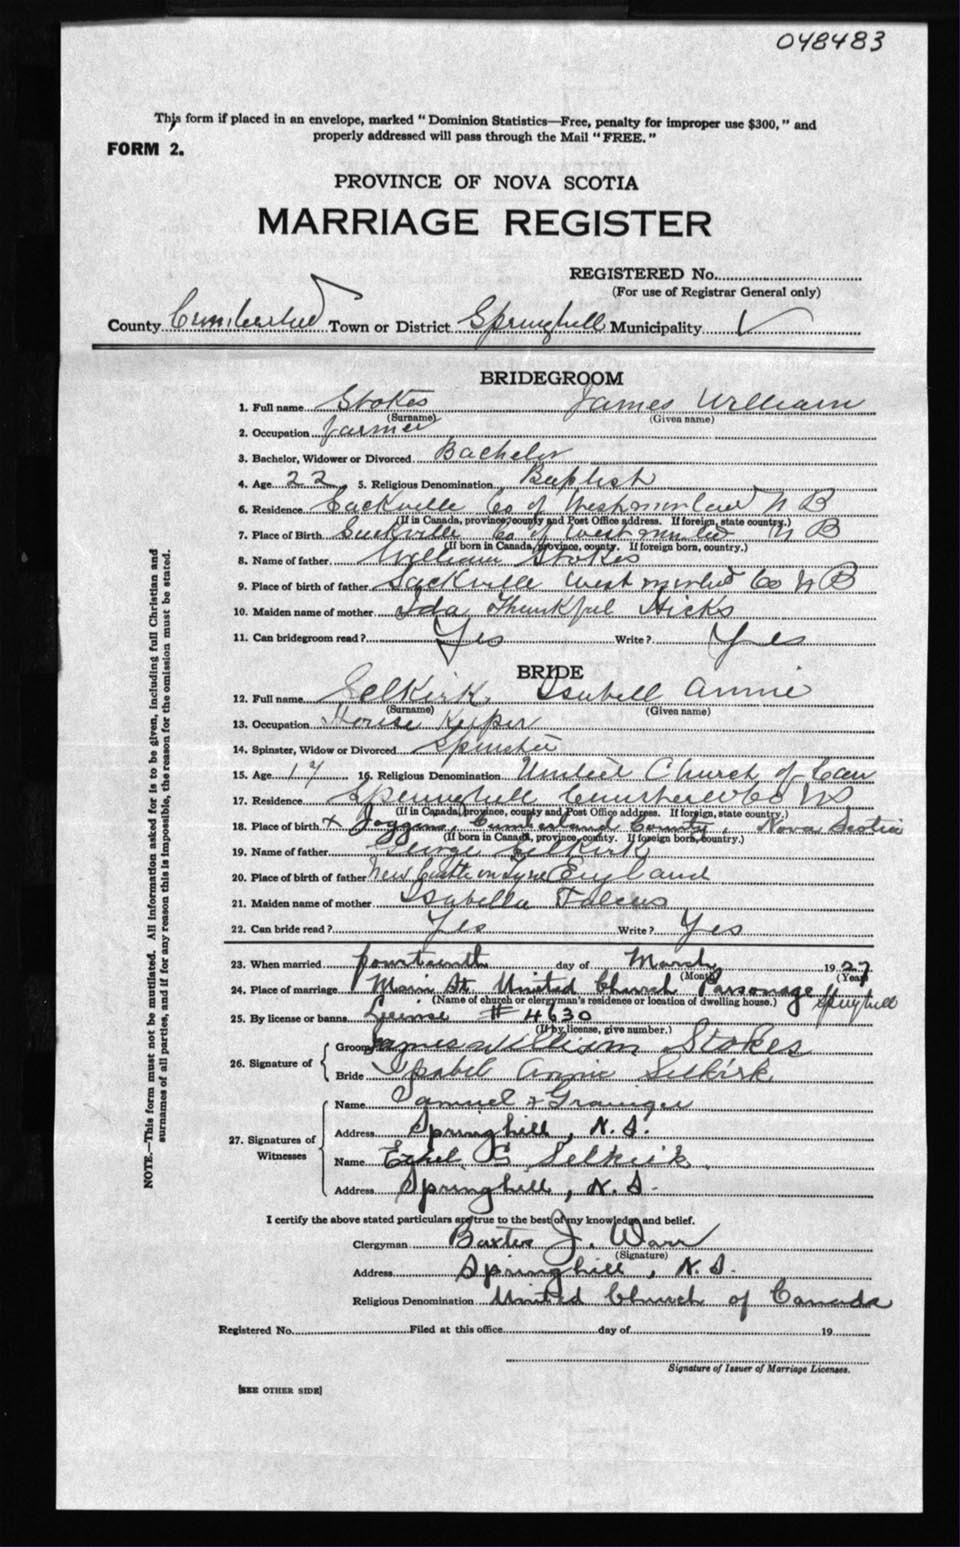 048483
This form if placed in an envelope, marked "Dominion Statistics—Free, penalty for improper use $300," and
properly addressed will pass through the Mail "FREE."
FORM 2.
PROVINCE OF NOVA SCOTIA
MARRIAGE REGISTER
REGISTERED No.
(For use of Registrar General only)
County Cumberland Town or District Springhill Municipality
BRIDEGROOM
1. Full name Stokes James William
(Surname) (Given name)
2. Occupation farmer
3. Bachelor, Widower or Divorced Bachelor
4. Age 22 5. Religious Denomination Baptist
6. Residence Sackville Co of Westmorland N B
(If in Canada, province, county and Post Office address. If foreign, state country.)
7. Place of Birth Sackville Co of Westmorland N B
(If born in Canada, province, county. If foreign born, country.)
8. Name of father William Stokes
9. Place of birth of father Sackville Westmorland Co N B
10. Maiden name of mother Ida Thankful Hicks
11. Can bridegroom read? Yes Write? Yes
BRIDE
12. Full name Selkirk, Isabell Annie
(Surname) (Given name)
13. Occupation House Keeper
14. Spinster, Widow or Divorced Spinster
15. Age 17 16. Religious Denomination United Church of Can
17. Residence Springhill Cumberland Co NS
(If in Canada, province, county and Post Office address. If foreign, state country.)
18. Place of birth x Joggins, Cumberland County, Nova Scotia
(If born in Canada, province, county. If foreign born, country.)
19. Name of father George Selkirk
20. Place of birth of father New Castle on Tyne England
21. Maiden name of mother Isabella
22. Can bride read? Yes Write? Yes
23. When married fourteenth day of March 1927
(Month) (Year)
24. Place of marriage Main St. United Church Parsonage Springhill
(Name of church or clergyman's residence or location of dwelling house.)
25. By license or banns License # 4630
(If by license, give number.)
26. Signature of
Groom James William Stokes
Bride Isabel Annie Selkirk
27. Signatures of Witnesses
Name Samuel Grainger
Address Springhill, N.S.
Name Ethel G Selkirk.
Address Springhill, N.S.
I certify the above stated particulars are true to the best of my knowledge and belief.
Clergyman Baxter J. Warr
(Signature)
Address Springhill, N.S.
Religious Denomination United Church of Canada
Registered No. Filed at this office day of 19
Signature of Issuer of Marriage Licenses.
[SEE OTHER SIDE]
NOTE.—This form must not be mutilated. All information asked for is to be given, including full Christian and
surnames of all parties, and if for any reason this is impossible, the reason for the omission must be stated.